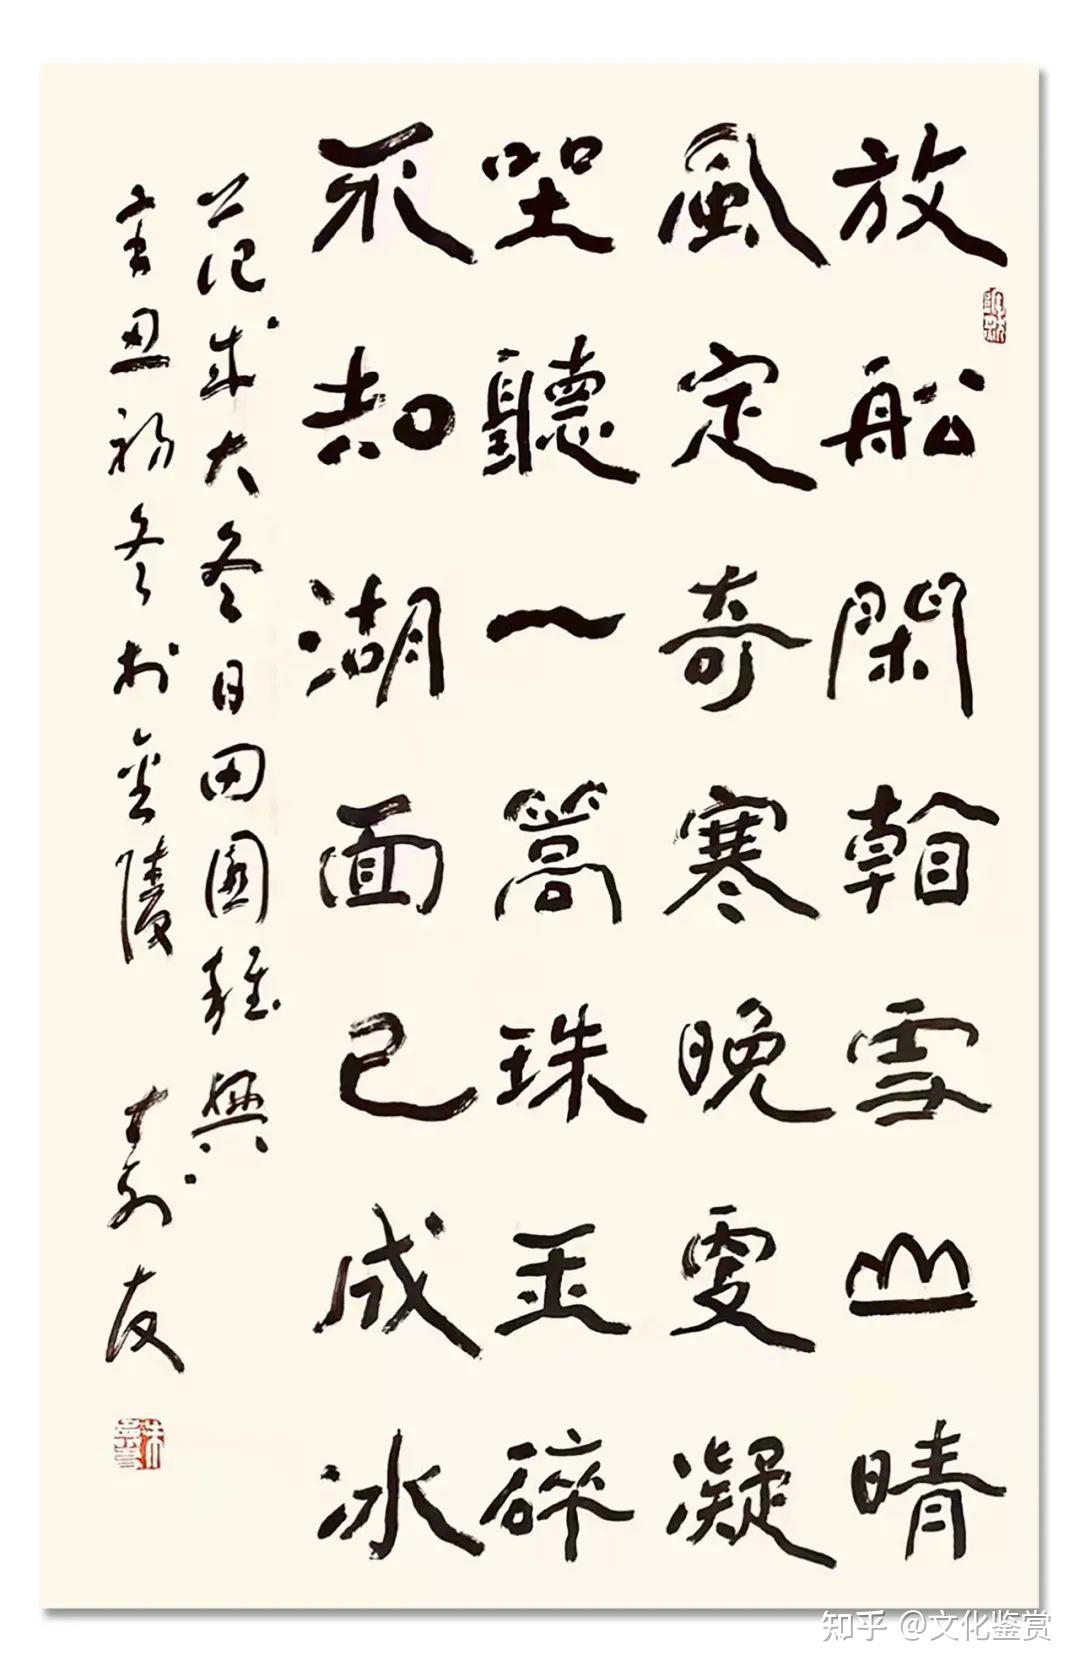 放船閑看雪山晴
風定奇寒晚更凝
坐聽一篙珠玉碎
不知湖面已成冰
范成大冬日田園雜興
辛丑初冬於金陵 壽友
知乎 @文化鉴赏